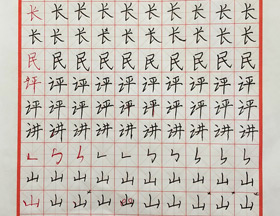 长长长长长长长长长
长长长长长长长长长
民民民民民民民民民
评评评评评评评评评
评评评评评评评评评
讲讲讲讲讲讲讲讲讲
山山山山山山山山山
山山山山山山山山山